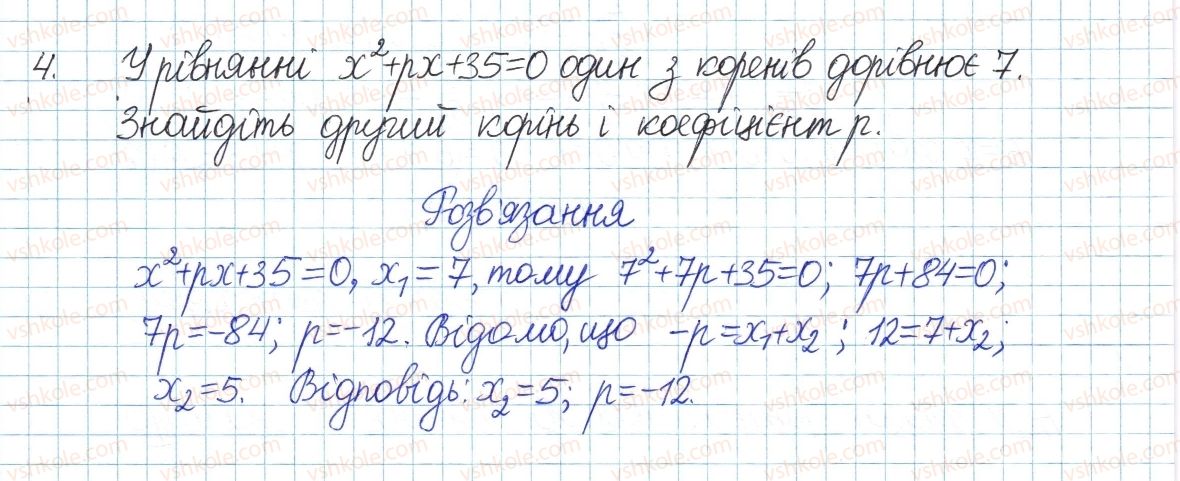 4. У рівнянні x²+px+35=0 один з коренів дорівнює 7.
Знайдіть другий корінь і коефіцієнт p.
Розв'язання
x²+px+35=0, x₁=7, тому 7²+7p+35=0; 7p+84=0;
7p=-84; p=-12. Відомо, що -p=x₁+x₂; 12=7+x₂;
x₂=5. Відповідь: x₂=5; p=-12.